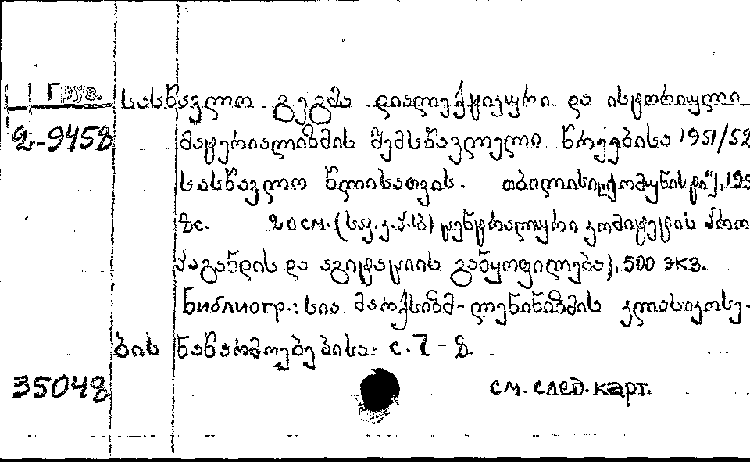 Груз. სასწავლო გეგმა დიალექტიკური და ისტორიული
2-9458 მატერიალიზმის შემსწავლელი წრეებისა 1951/52
სასწავლო წლისათვის. თბილისი, „კომუნისტი",
8с. 20 см. (საქ. კ. პ. (ბ) ცენტრალური კომიტეტის პრო
პაგანდის და აგიტაციის განყოფილება), 500 экз.
Библиогр.: სია მარქსიზმ-ლენინიზმის კლასიკოსე-
ბის ნაწარმოებებისა. с. 7-8.
35048 см. след. карт.